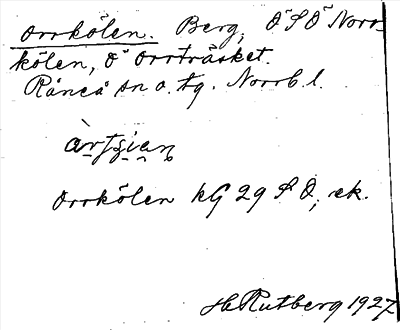 Orrkölen. Berg, ÖSÖ Norr-
kölen, Ö Orrträsket.
Råneå sn o. tg. Norrb. l.
Orrkölen kG 29 SO, ek.
H Rutberg 1927